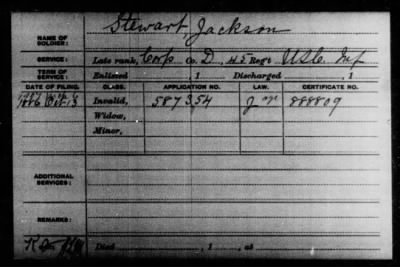 NAME OF SOLDIER: Stewart, Jackson
SERVICE: Late rank, Corp Co. D, 45 Reg't U.S.C. Inf
TERM OF SERVICE: Enlisted , 1 Discharged , 1
DATE OF FILING. CLASS. APPLICATION NO. LAW. CERTIFICATE NO.
1886 Oct 13 Invalid, 587354 888809
Widow,
Minor,
ADDITIONAL SERVICES:
REMARKS:
Died , 1 , at